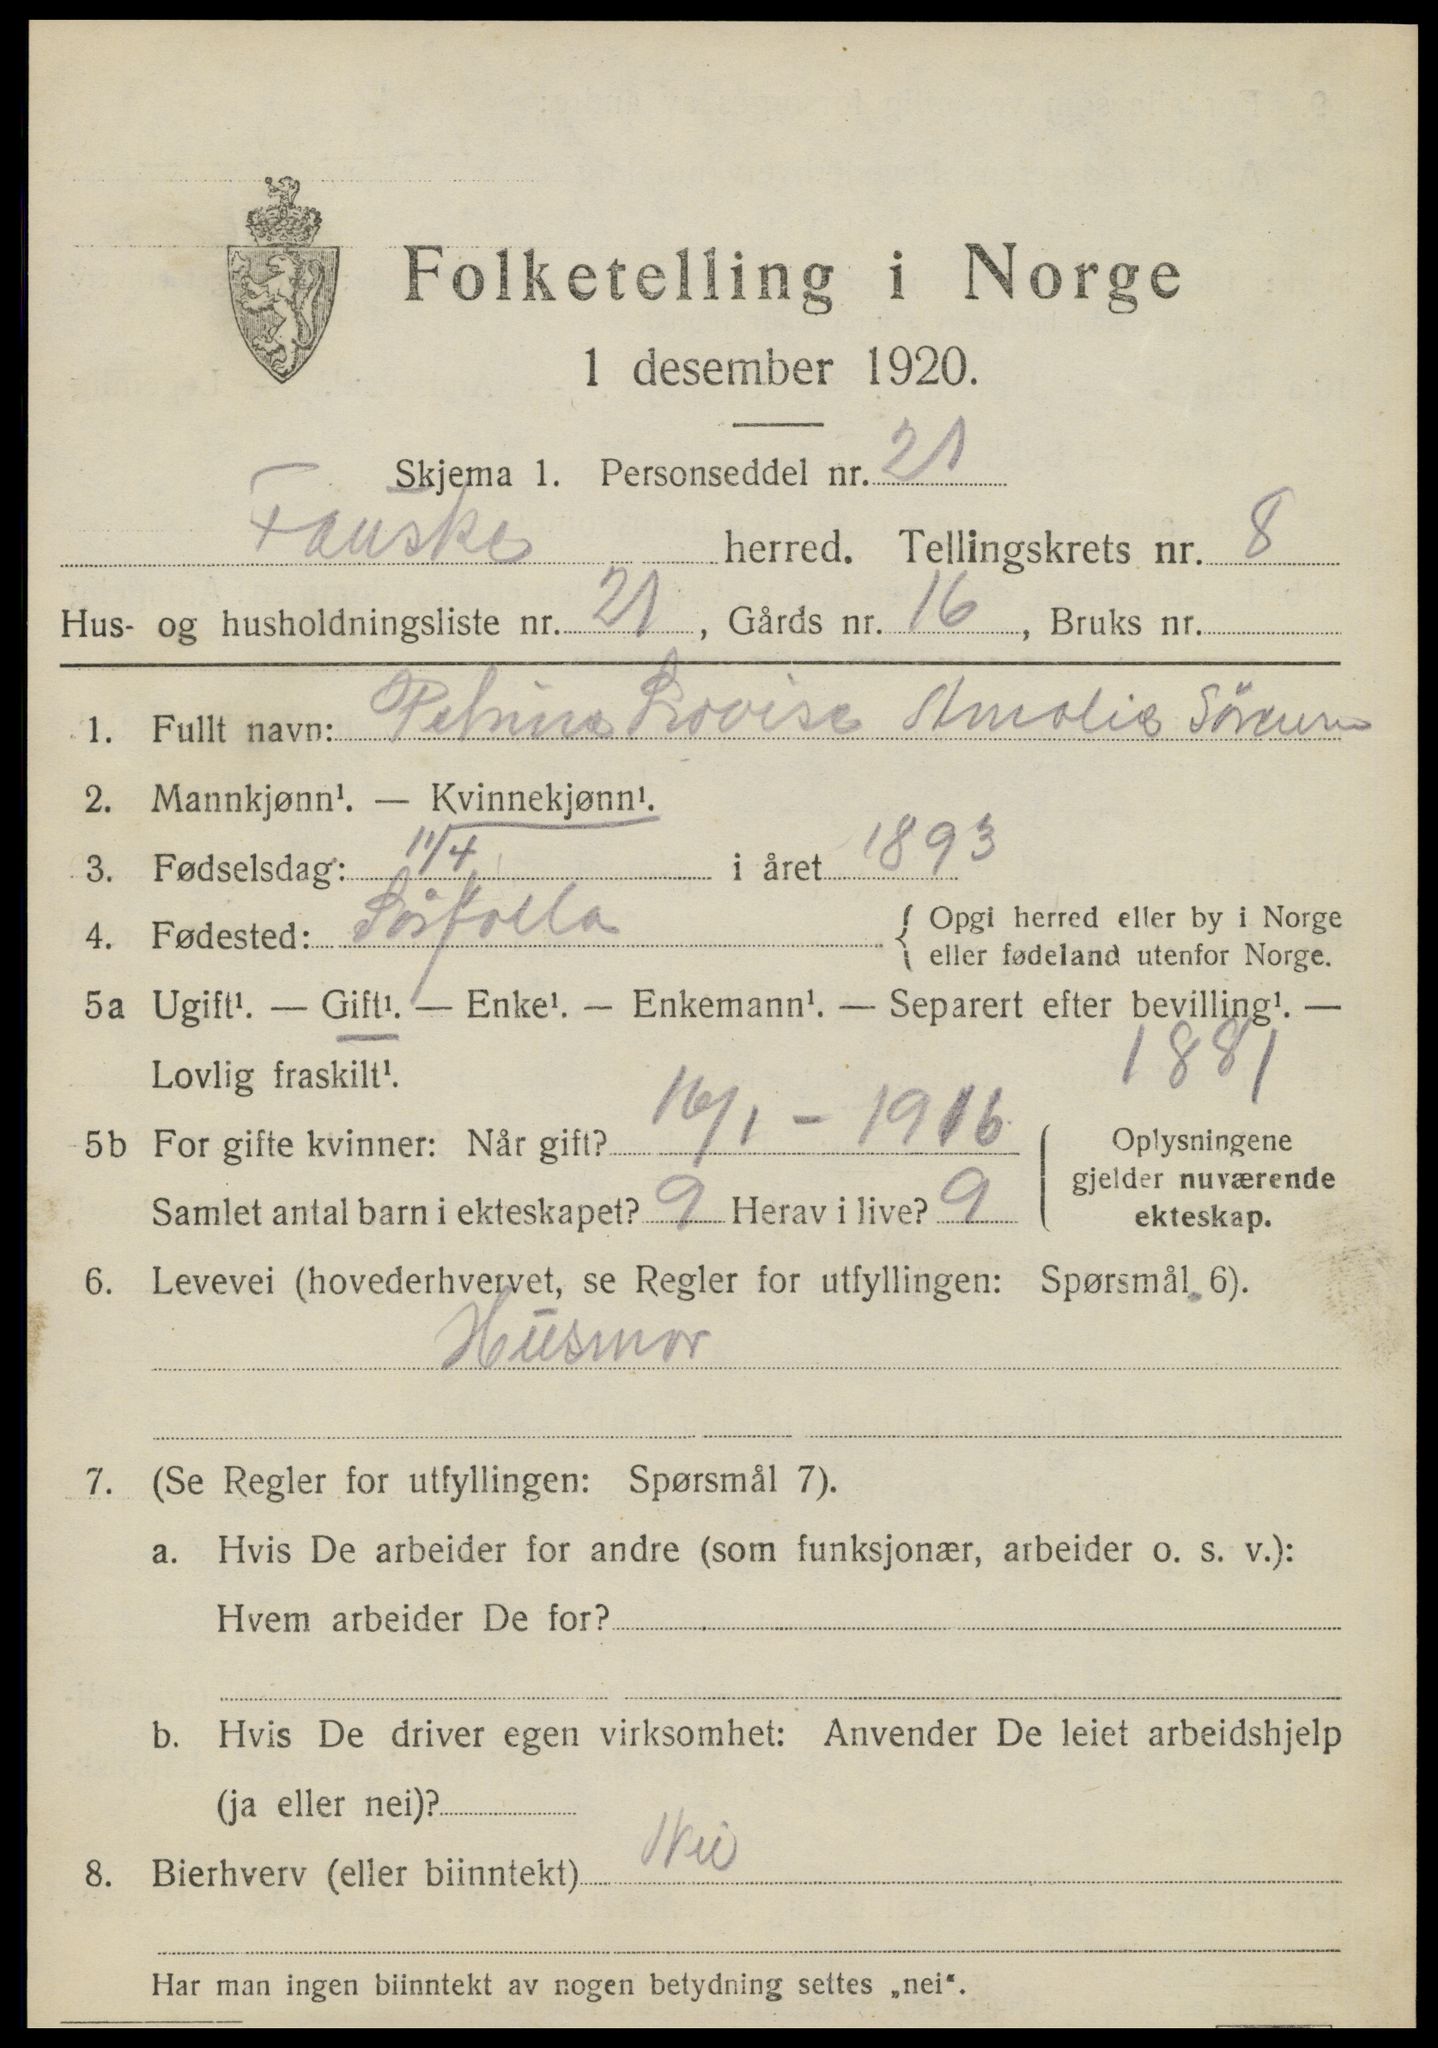 Folketelling i Norge
1 desember 1920.
Skjema 1. Personseddel nr. 21
Fauske herred. Tellingskrets nr. 8
Hus- og husholdningsliste nr. 21, Gårds nr. 16, Bruks nr.
1. Fullt navn: Petrine Lovise Amalie Sörensen
2. Mannkjønn¹. — Kvinnekjønn¹.
3. Fødselsdag: 11/4 i året 1893
4. Fødested: Sørfolla { Opgi herred eller by i Norge
eller fødeland utenfor Norge.
5a Ugift¹. — Gift¹. — Enke¹. — Enkemann¹. — Separert efter bevilling¹. —
Lovlig fraskilt¹. 1881
5b For gifte kvinner: Når gift? 16/1 - 1916 { Oplysningene
gjelder nuværende
Samlet antal barn i ekteskapet? 9 Herav i live? 9 ekteskap.
6. Levevei (hovederhvervet, se Regler for utfyllingen: Spørsmål 6).
Husmor
7. (Se Regler for utfyllingen: Spørsmål 7).
a. Hvis De arbeider for andre (som funksjonær, arbeider o. s. v.):
Hvem arbeider De for?
b. Hvis De driver egen virksomhet: Anvender De leiet arbeidshjelp
(ja eller nei)?
8. Bierhverv (eller biinntekt) Nei
Har man ingen biinntekt av nogen betydning settes „nei“.